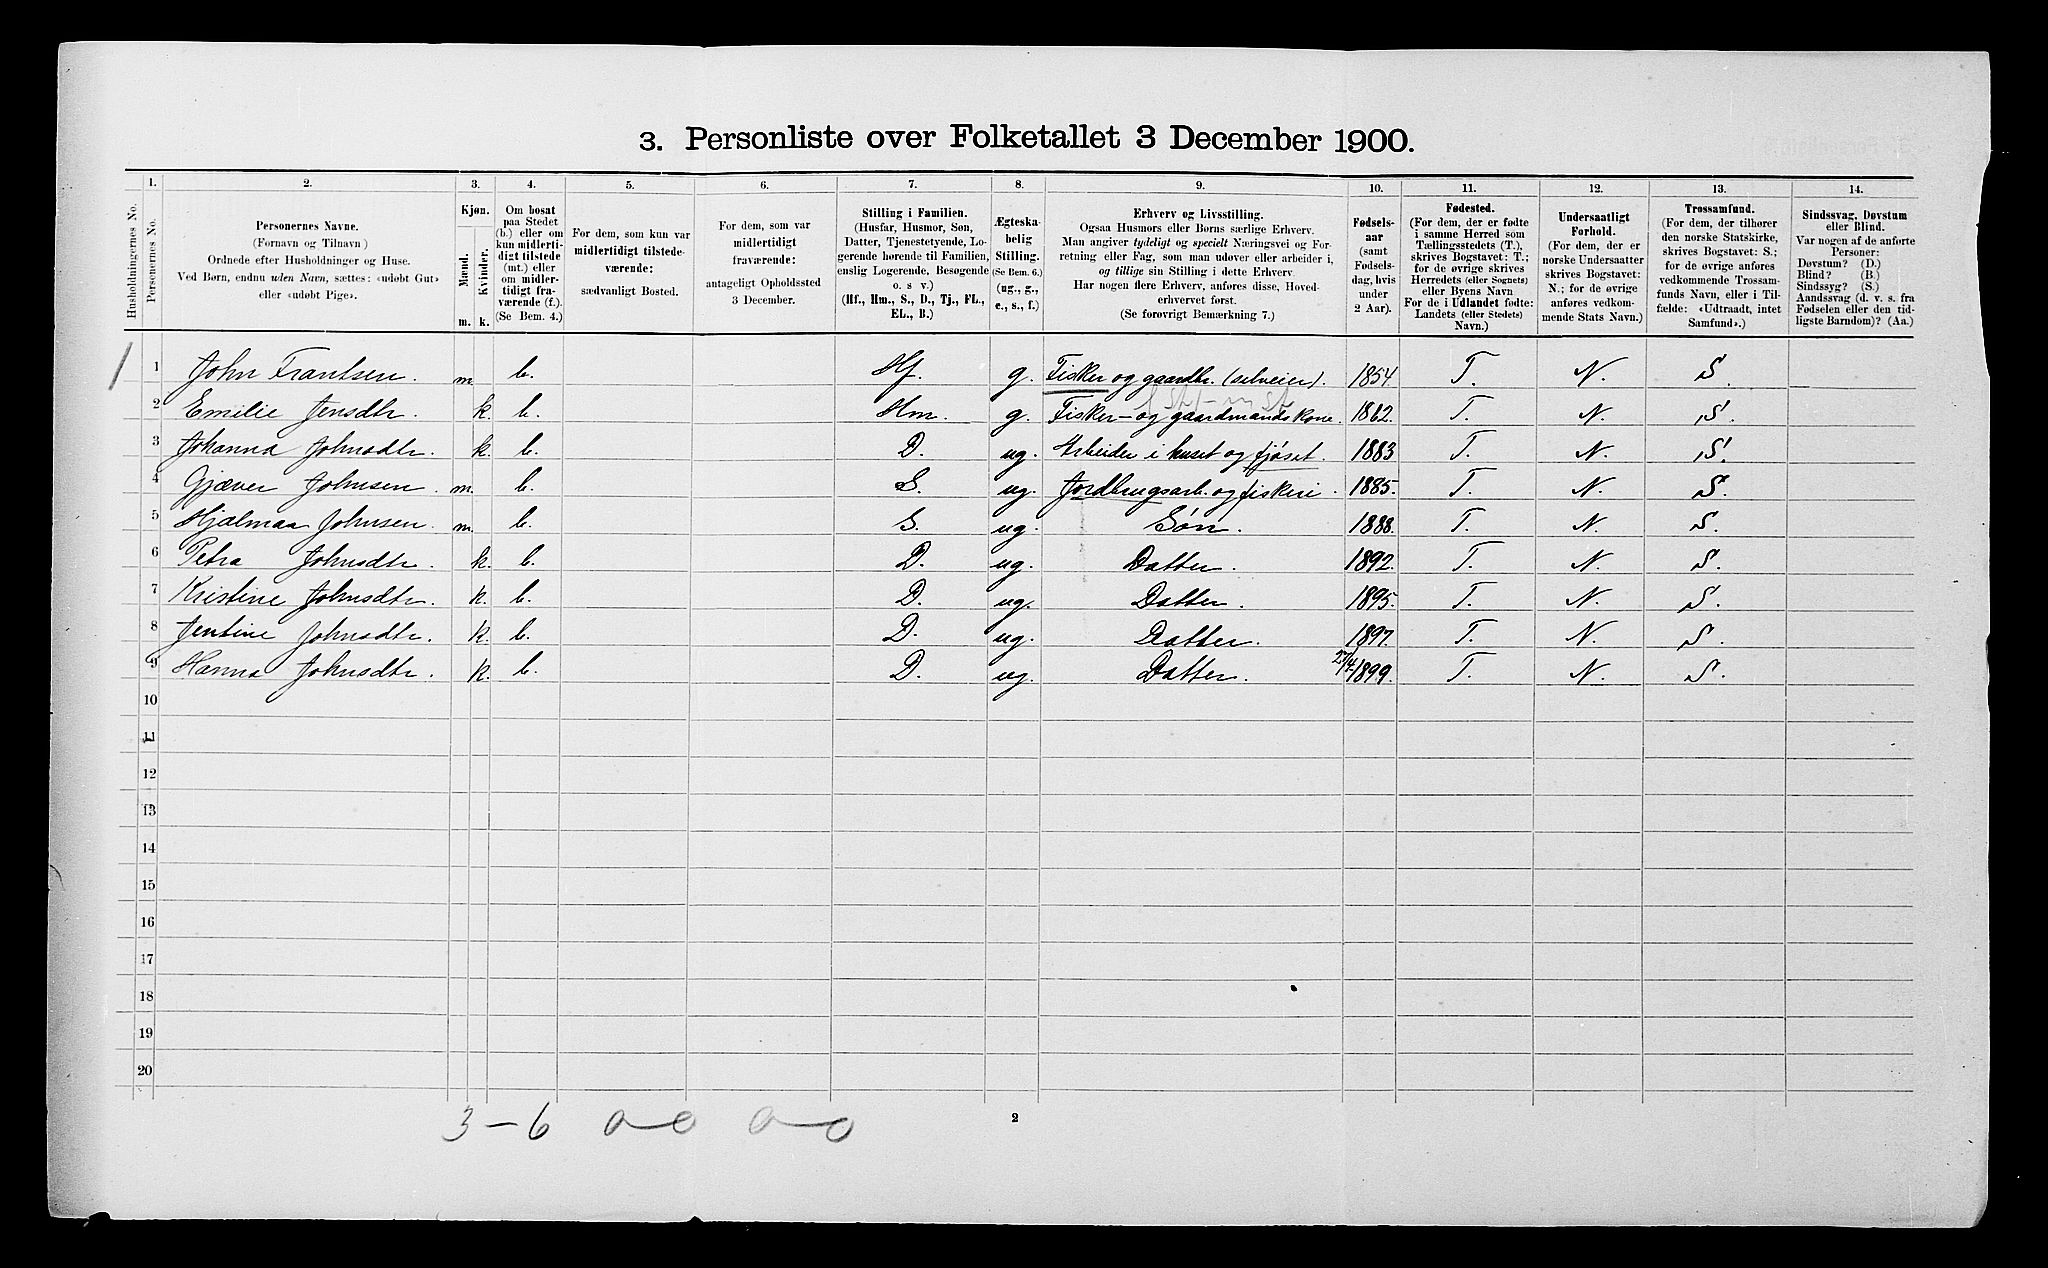 3. Personliste over Folketallet 3 December 1900.
1. 2. 3. 4. 5. 6. 7. 8. 9. 10. 11. 12. 13. 14.
Husholdningernes No.
Personernes No.
Personernes Navne.
(Fornavn og Tilnavn)
Ordnede efter Husholdninger og Huse.
Ved Børn, endnu uden Navn, sættes: «udøbt Gut»
eller «udøbt Pige».
Kjøn.
Mænd.
Kvinder.
m. k.
Om bosat
paa Stedet
(b.) eller om
kun midlerti-
digt tilstede
(mt.) eller
om midler-
tidigt fra-
værende (f.).
(Se Bem. 4.)
For dem, som kun var
midlertidigt tilstede-
værende:
sædvanligt Bosted.
For dem, som var
midlertidigt
fraværende:
antageligt Opholdssted
3 December.
Stilling i Familien.
(Husfar, Husmor, Søn,
Datter, Tjenestetyende, Lo-
gerende hørende til Familien,
enslig Logerende, Besøgende
o. s v.)
(Hf., Hm., S., D., Tj., FL.,
EL., B.)
Ægteska-
belig
Stilling.
(Se Bem. 6.)
(ug., g.,
e., s., f.)
Erhverv og Livsstilling.
Ogsaa Husmors eller Børns særlige Erhverv.
Man angiver tydeligt og specielt Næringsvei og For-
retning eller Fag, som man udøver eller arbeider i,
og tillige sin Stilling i dette Erhverv.
Har nogen flere Erhverv, anføres disse, Hoved-
erhvervet først.
(Se forøvrigt Bemærkning 7.)
Fødsels-
aar
(samt
Fødsels-
dag, hvis
under
2 Aar).
Fødested.
(For dem, der er fødte
i samme Herred som
Tællingsstedets (T.),
skrives Bogstavet: T.;
for de øvrige skrives
Herredets (eller Sognets)
eller Byens Navn
For de i Udlandet fødte:
Landets (eller Stedets)
Navn.)
Undersaatligt
Forhold.
(For dem, der er
norske Undersaatter
skrives Bogstavet:
N.; for de øvrige
anføres vedkom-
mende Stats Navn.)
Trossamfund.
(For dem, der tilhører
den norske Statskirke,
skrives Bogstavet: S.;
for de øvrige anføres
vedkommende Trossam-
funds Navn, eller i Til-
fælde: «Udtraadt, intet
Samfund».)
Sindssvag, Døvstum
eller Blind.
Var nogen af de anførte
Personer:
Døvstum? (D.)
Blind? (B.)
Sindssyg? (S.)
Aandssvag (d. v. s. fra
Fødselen eller den tid-
ligste Barndom)? (Aa.)
1 1 John Frantsen. m. b. Hf. g. Fisker og gaardbr. (selveier). 1854. T. N. S.
2 Emilie Jensdtr. k. b. Hm. g. Fisker- og gaardmandskone. 1862. T. N. S.
3 Johanna Johnsdtr. k. b. D. ug. Arbeider i huset og fjøset. 1883 T. N. S.
4 Gjæver Johnsen. m. b. S. ug. Jordbrugsarb. og fiskeri. 1885. T. N. S.
5 Hjalmar Johnsen. m. b. S. ug. Søn. 1888. T. N. S.
6 Petra Johnsdtr. k. b. D. ug. Datter. 1892. T. N. S.
7 Kristine Johnsdtr. k. b. D. ug. Datter. 1895. T. N. S.
8 Jentine Johnsdtr. k. b. D. ug. Datter. 1897. T. N. S.
9 Hanna Johnsdtr. k. b. D. ug. Datter. 27/4 1899. T. N. S.
10
11
12
13
14
15
16
17
18
19
20
3 - 6 0-0 0-0
2